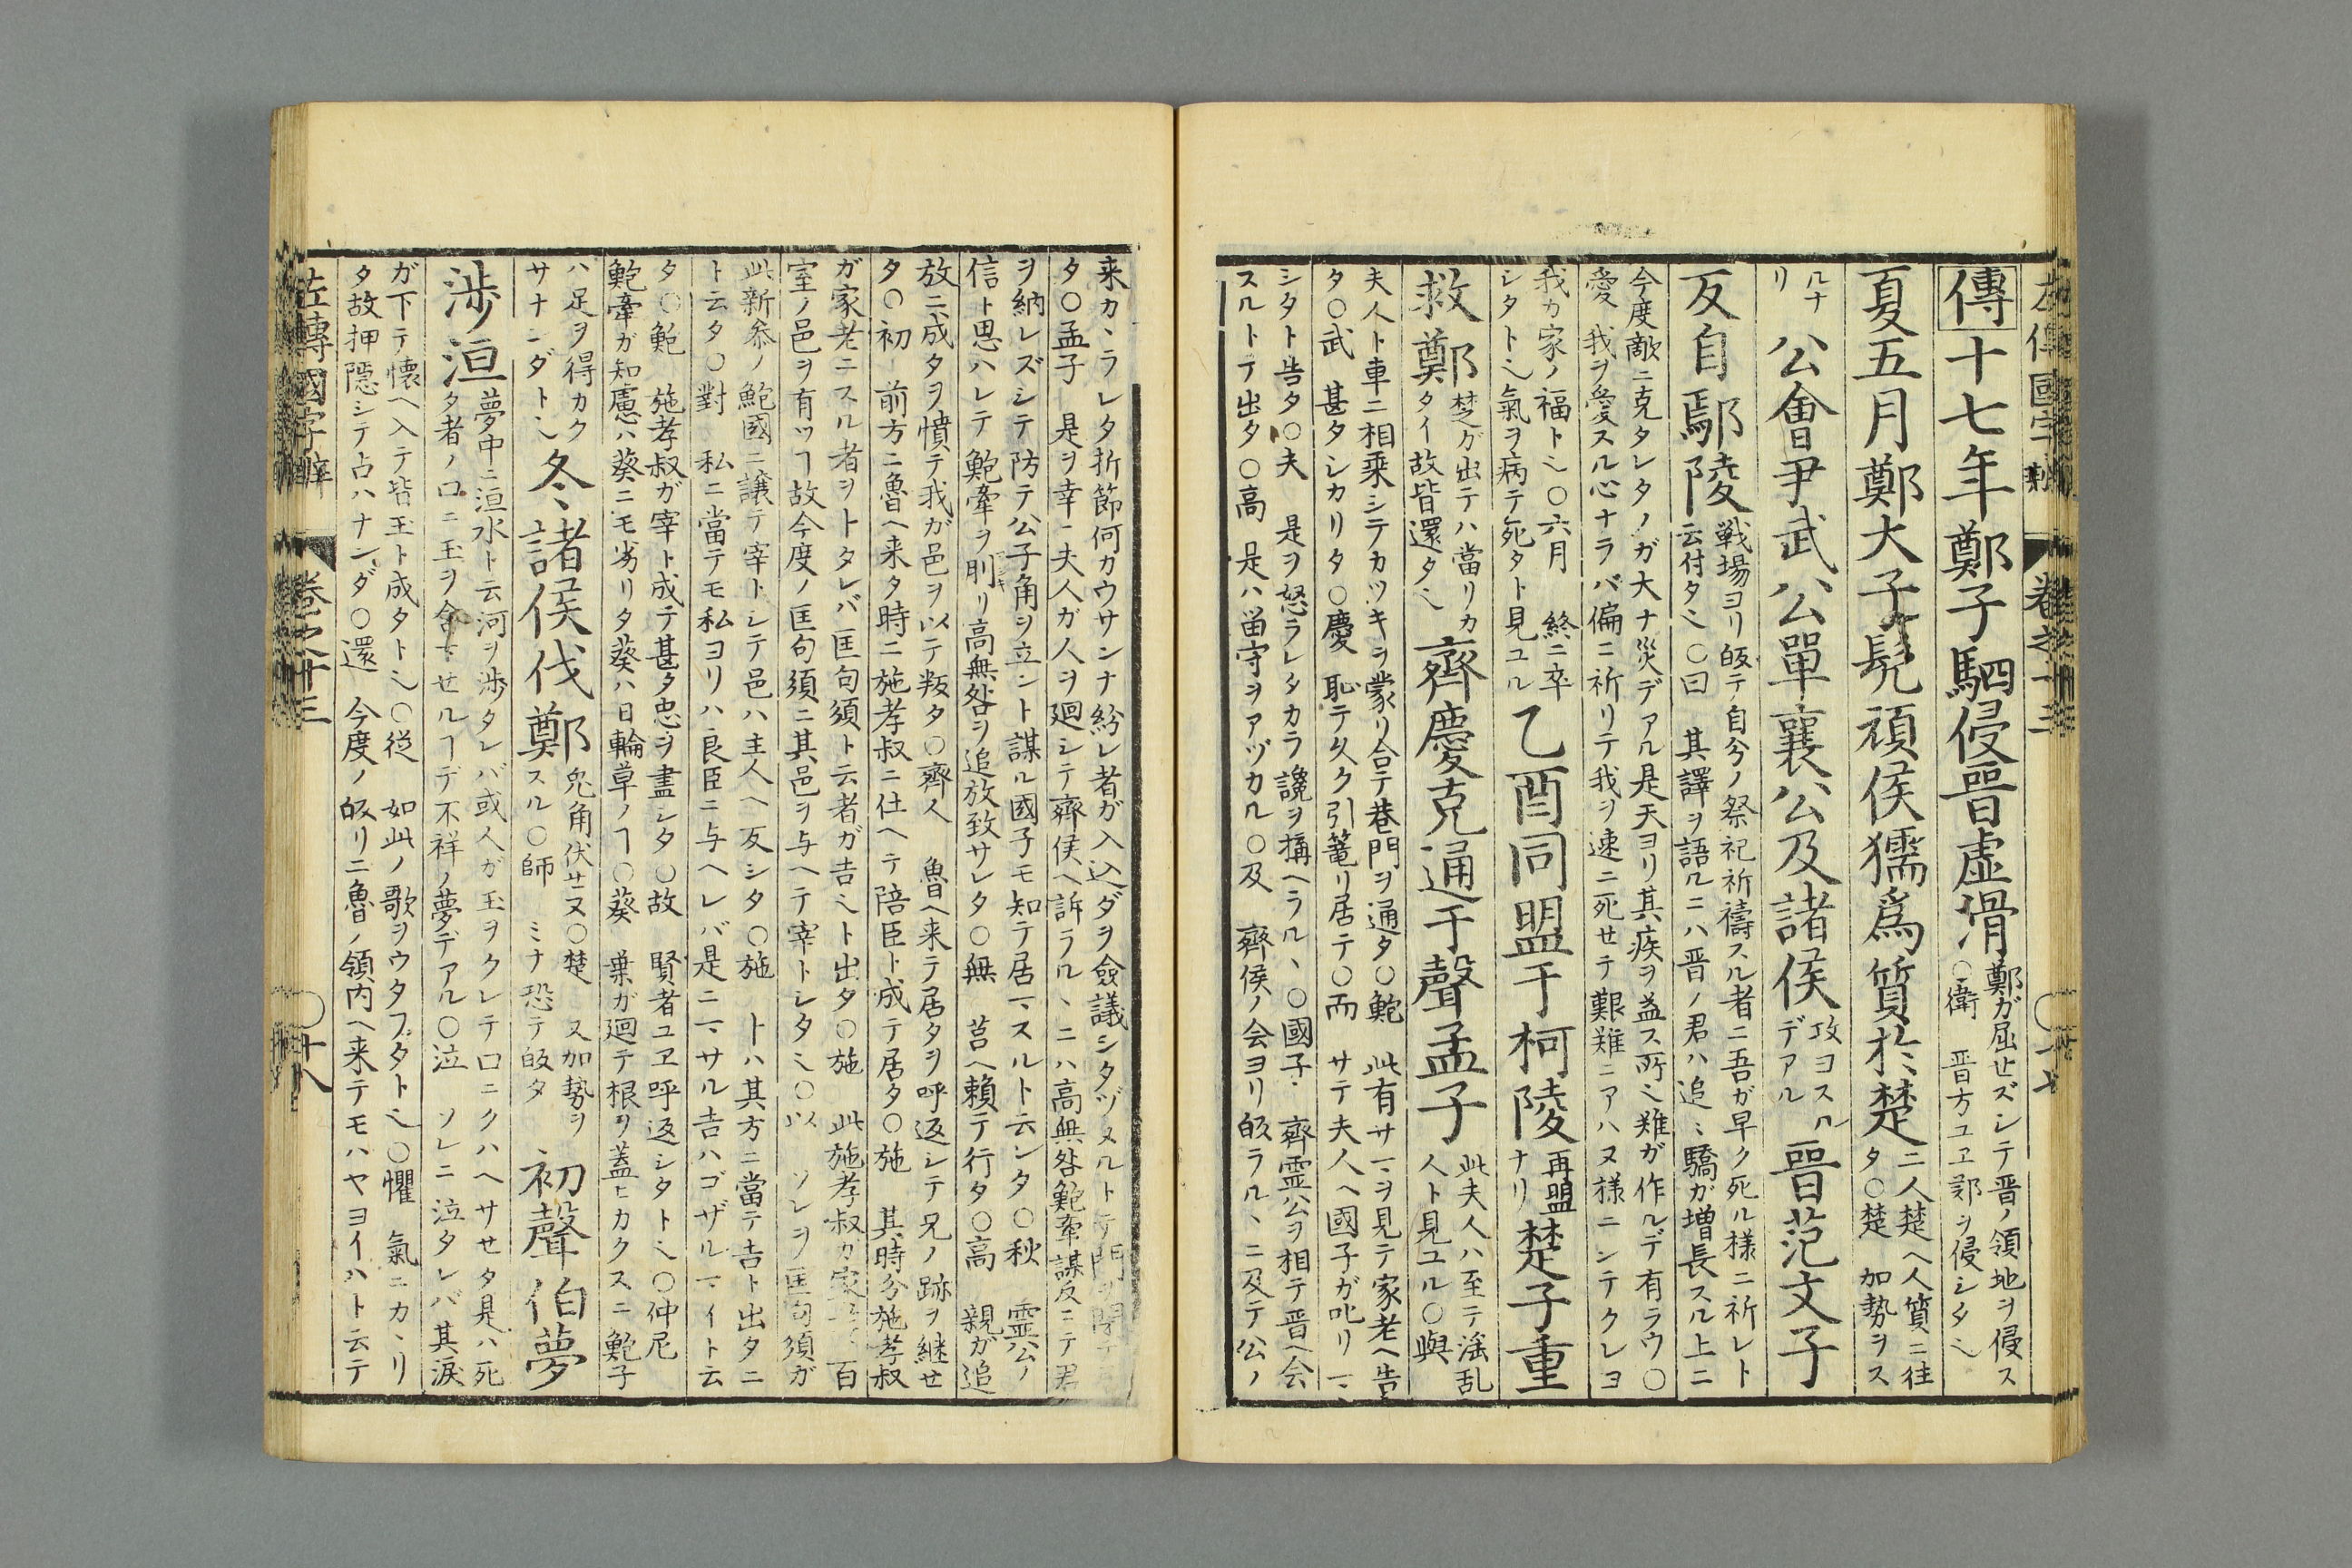 傳十七年鄭子駟侵晋虚滑
鄭ガ屈セズシテ晋ノ領地ヲ侵ス
○衛 晋方ユヱ鄭ヲ侵シタ
夏五月鄭大子髠頑侯獳爲質於楚
二人楚ヘ人質ニ往
タ○楚 加勢ヲス
ルナ
リ
公會尹武公單襄公及諸侯
攻ヨスル
デアル
晋范文子
反自鄢陵
戦場ヨリ皈テ自分ノ祭祀祈禱スル者ニ吾ガ早ク死ル様ニ祈レト
云付タ ○曰 其譯ヲ語ルニハ晋ノ君ハ追〻驕ガ増長スル上ニ
今度敵ニ克タレタノガ大ナ災デアル是天ヨリ其疾ヲ益ス所 難ガ作ルデ有ラウ○
愛 我ヲ愛スル心ナラバ偏ニ祈リテ我ヲ速ニ死セテ艱難ニアハヌ様ニシテクレヨ
我カ家ノ福ト ○六月 終ニ卒
シタト 氣ヲ病テ死タト見ユル
乙酉同盟于柯陵
再盟
ナリ
楚子重
救鄭
楚ガ出テハ當リカ
タイ故皆還タ
齊慶克通于聲孟子
此夫人ハ至テ滛乱
人ト見ユル○與
夫人ト車ニ相乗シテカツキヲ蒙リ合テ巷門ヲ通タ○鮑 此有サマヲ見テ家老ヘ告
タ○武 甚タシカリタ○慶 恥テ久ク引篭リ居テ○而 サテ夫人ヘ國子ガ叱リマ
シタト告タ○夫 是ヲ怒ラレタカラ讒ヲ搆ヘラル、○國子 齊霊公ヲ相テ晋ヘ会
スルトテ出タ○高 是ハ留守ヲアヅカル○及 齊侯ノ会ヨリ皈ラル、ニ及テ公ノ
来カ、ラレタ折節何カウサンナ紛レ者ガ入込ダヲ僉議シタヅヌルトテ門ヲ閉テ
タ○孟子 是ヲ幸ニ夫人ガ人ヲ廻シテ齊侯ヘ訴ラル、ニハ高無咎鮑牽謀反ニテ君
ヲ納レズシテ防テ公子角ヲ立ント謀ル國子モ知テ居マスルト云ンタ○秋 霊公ノ
信ト思ハレテ鮑牽ヲ刖リ高無咎ヲ追放致サレタ○無 莒ヘ頼テ行タ○高 親ガ追
放ニ成タヲ憤テ我ガ邑ヲ以テ叛タ○齊人 魯ヘ来テ居タヲ呼返シテ兄ノ跡ヲ継せ
タ○初 前方ニ魯ヘ来タ時ニ施孝叔ニ仕ヘテ陪臣ト成テ居タ○施 其時分施孝叔
ガ家老ニスル者ヲトタレバ匡句須ト云者ガ吉 ト出タ○施 此施孝叔カ家 百
室ノ邑ヲ有ツヿ故今度ノ匡句須ニ其邑ヲ与ヘテ宰トシタ ○以 ソレヲ匡句須ガ
此新叅ノ鮑國ニ譲テ宰トシテ邑ハ主人ヘ反シタ○施 トハ其方ニ當テ吉ト出タニ
ト云タ○對 私ニ當テモ私ヨリハ良臣ニ与ヘレバ是ニマサル吉ハゴザルマイト云
タ○鮑 施孝叔ガ宰ト成テ甚タ忠ヲ盡シタ○故 賢者ユヱ呼返シタト ○仲尼
鮑牽ガ知慮ハ葵ニモ劣リタ葵ハ日輪草ノヿ○葵 葉ガ廻テ根ヲ蓋ヒカクスニ鮑子
ハ足ヲ得カク
サナンダト
冬諸侯伐鄭
兎角伏せヌ○楚 又加勢ヲ
スル○師 ミナ恐テ皈タ
初聲伯夢
涉洹
夢中ニ洹水ト云河ヲ渉タレバ或人ガ玉ヲクレテ口ニクハヘサせタ是ハ死
タ者ノ口ニ玉ヲ含マせルヿデ不祥ノ夢デアル○泣 ソレニ泣タレバ其涙
ガ下テ懐ヘ入テ皆玉ト成タト ○從 如此ノ歌ヲウタフタト ○懼 氣ニカ、リ
タ故押隠シテ占ハナンダ○還 今度ノ皈リニ魯ノ領内ヘ来テモハヤヨイハト云テ
左轉國字辯 卷之十三 ○十八